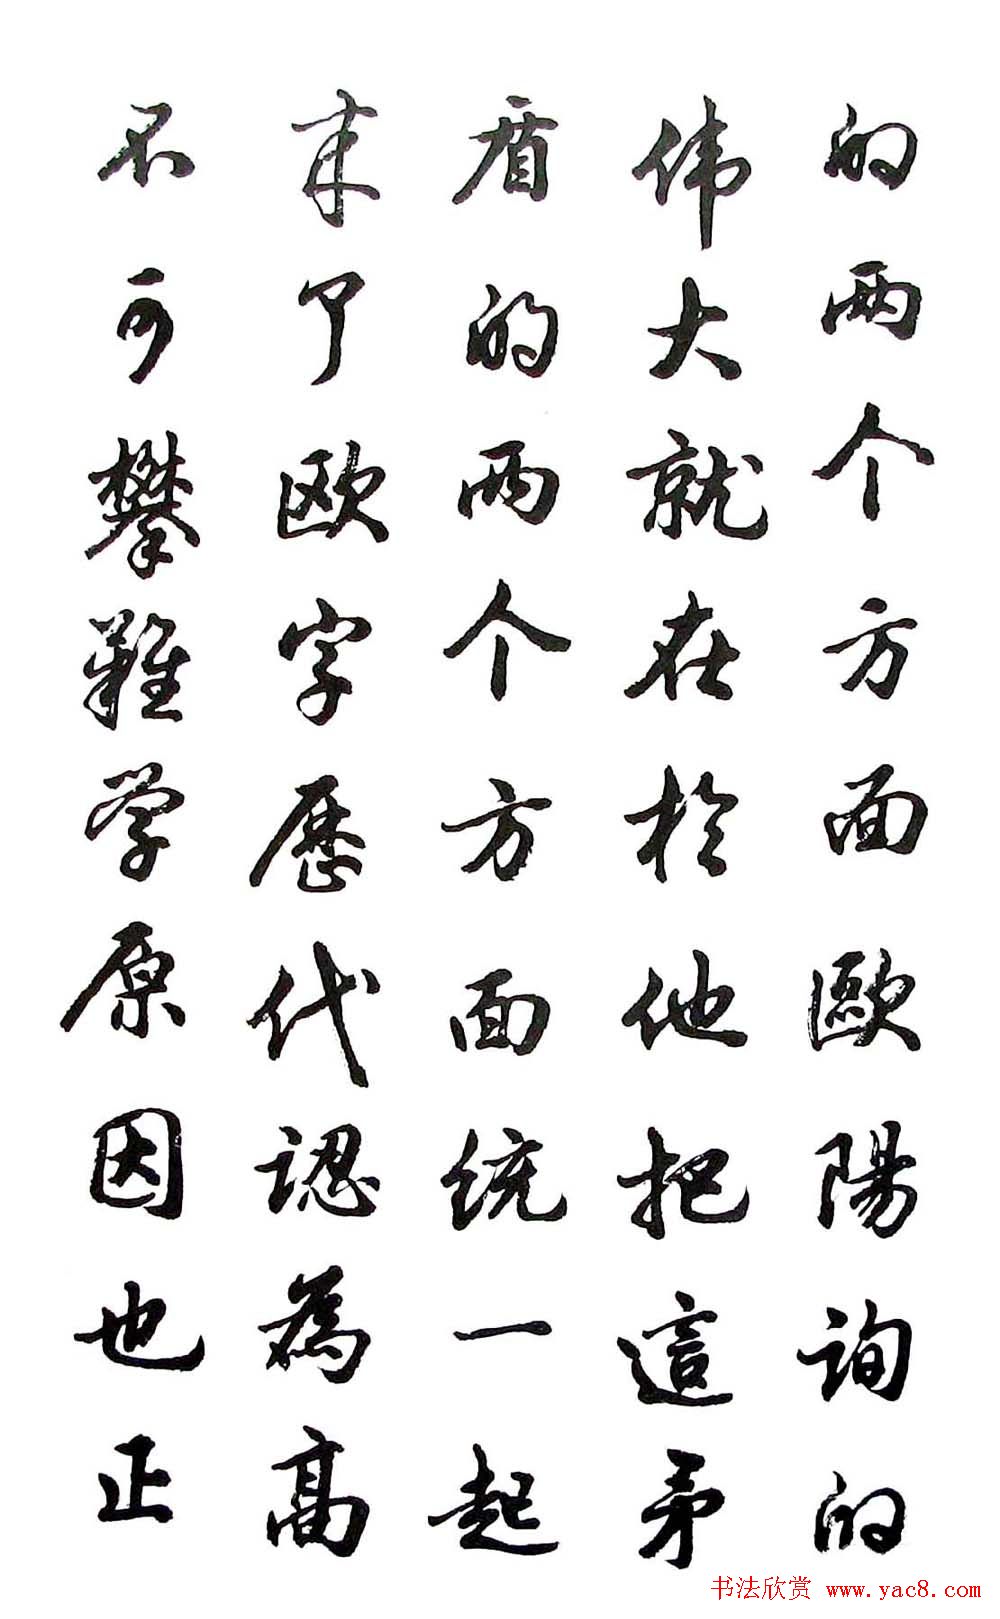 的两个方面歐陽询的
伟大就在於他把這矛
盾的两个方面统一起
来了欧字歷代認為高
不可攀難学原因也正
书法欣赏 www.yac8.com